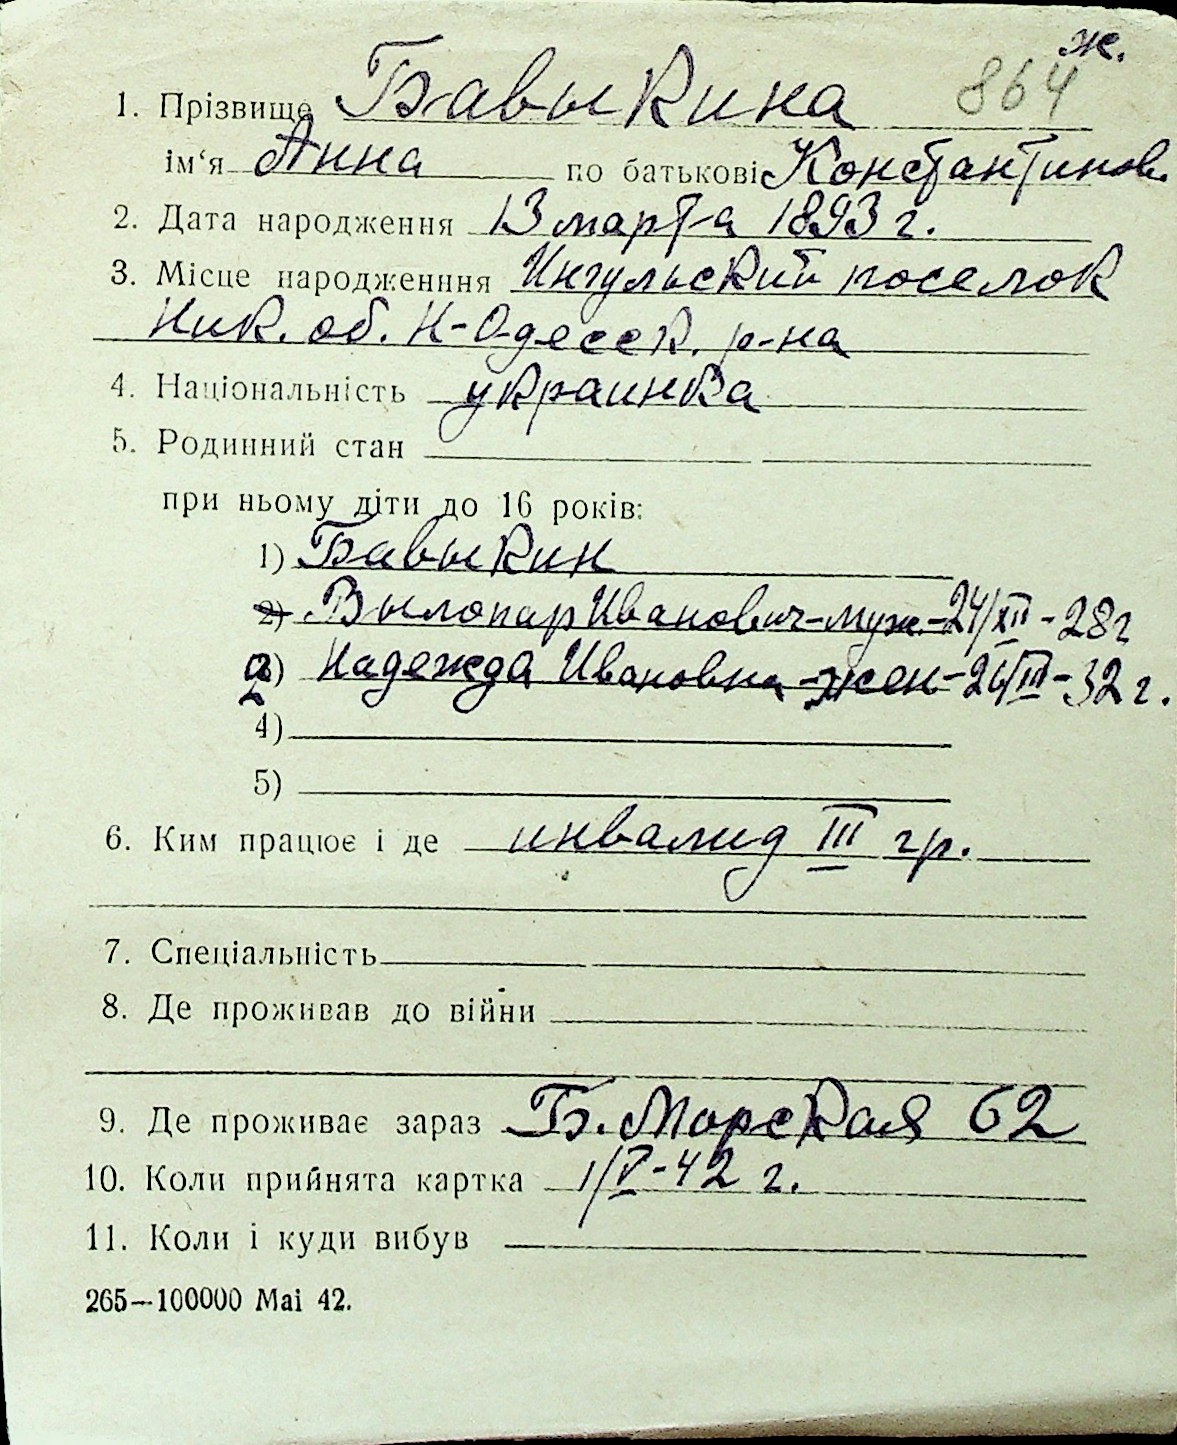 ж.
1. Прізвище Бавыкина 864
ім‘я Анна по батькові Константинов.
2. Дата народження 13 марта 1893 г.
3. Місце народженння Ингульский поселок
Ник. об. Н-Одесск. р-на
4. Національність украинка
5. Родинний стан
при ньому діти до 16 років:
1) Бавыкин
2) Вылопар Иванович-муж.-24/XII-28г
2) Надежда Ивановна-жен-26/III-32 г.
4)
5)
6. Ким працює і де инвалид III гр.
7. Спеціальність
8. Де проживав до війни
9. Де проживає зараз Б. Морская 62
10. Коли прийнята картка 1/V-42 г.
11. Коли і куди вибув
265—100000 Mai 42.